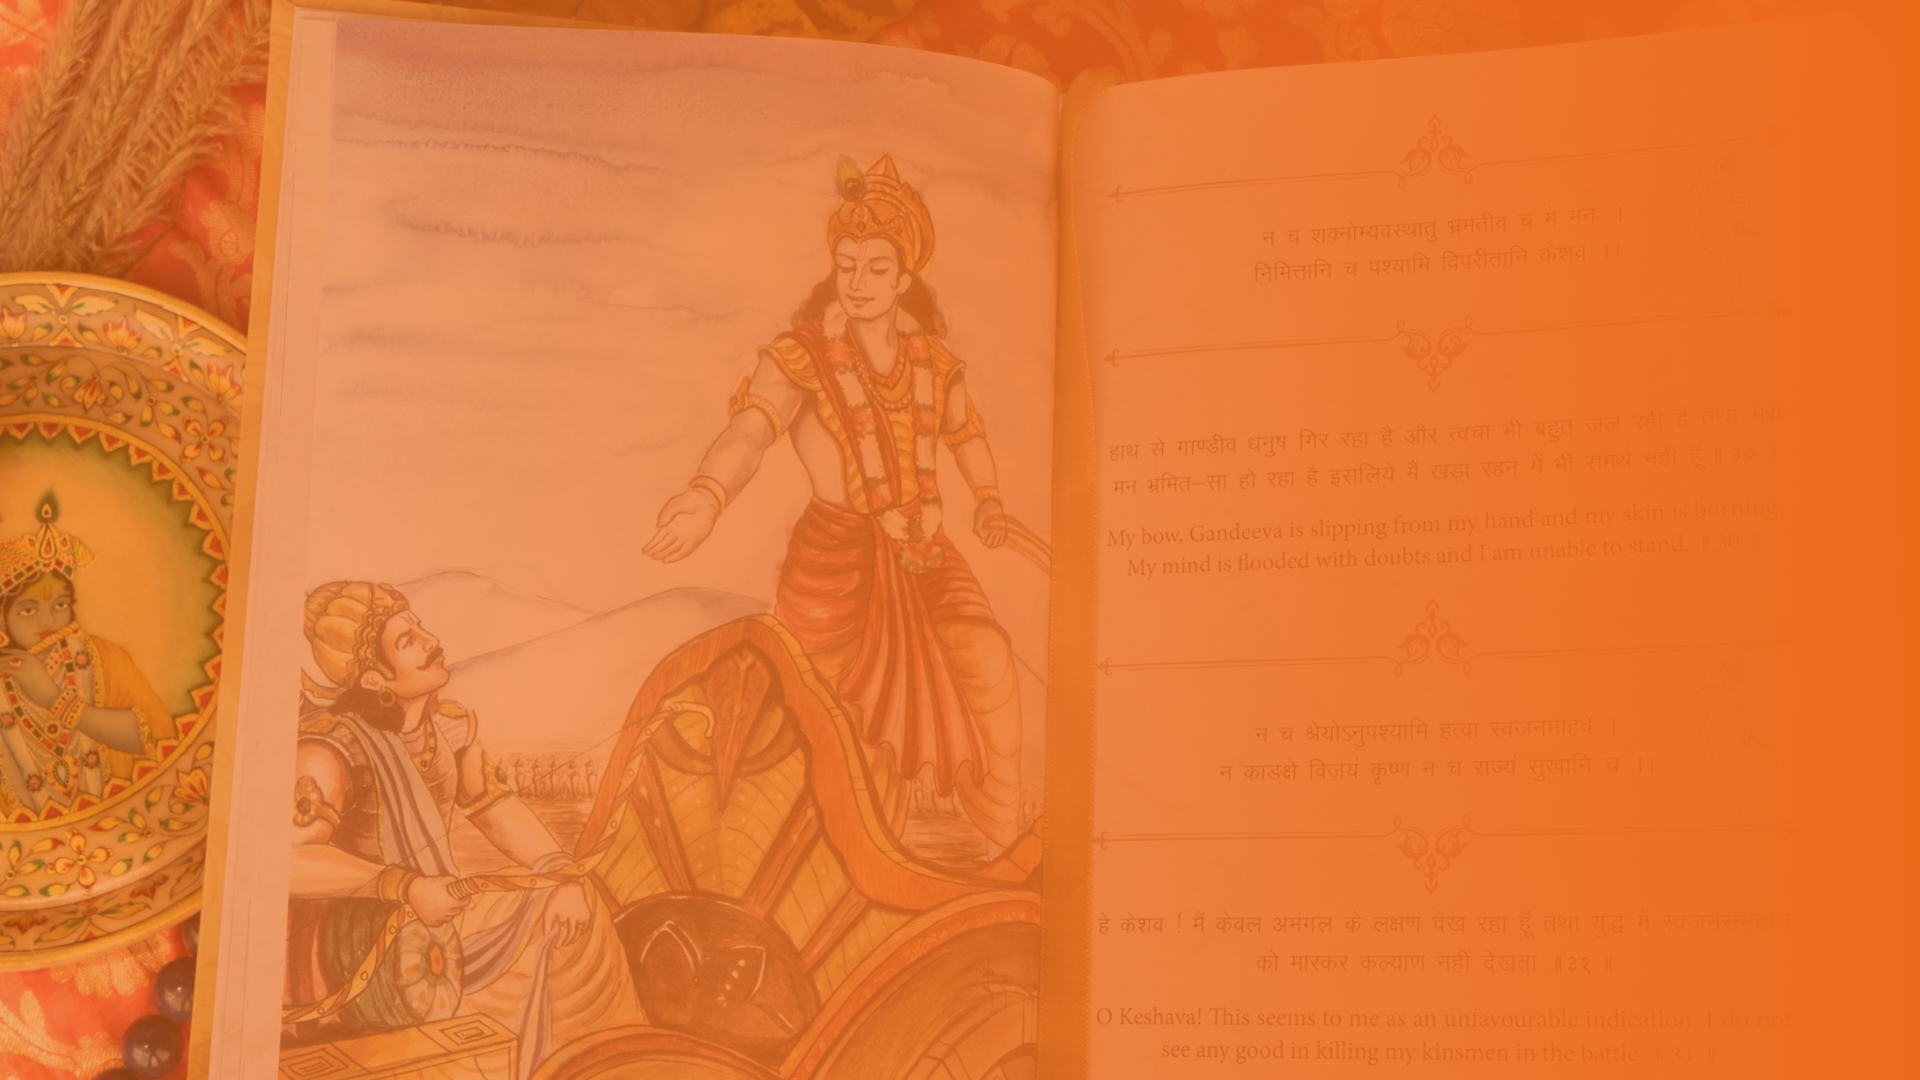 न च शक्नोम्यवस्थातुं भ्रमतीव च मे मनः ।
निमित्तानि च पश्यामि विपरीतानि केशव ।।
हाथ से गाण्डीव धनुष गिर रहा है और त्वचा भी बहुत जल रही है तथा मेरा
मन भ्रमित–सा हो रहा है इसलिये मैं खड़ा रहने में भी समर्थ नहीं हूँ ॥ ३० ॥
My bow, Gandeeva is slipping from my hand and my skin is burning,
My mind is flooded with doubts and I am unable to stand. ॥ 30 ॥
न च श्रेयोऽनुपश्यामि हत्वा स्वजनमाहवे ।
न काङ्क्षे विजयं कृष्ण न च राज्यं सुखानि च ।।
हे केशव ! मैं केवल अमंगल के लक्षण देख रहा हूँ तथा युद्ध में स्वजनसमुदाय
को मारकर कल्याण नहीं देखता ॥३१ ॥
O Keshava! This seems to me as an unfavourable indication. I do not
see any good in killing my kinsmen in the battle. ॥ 31 ॥